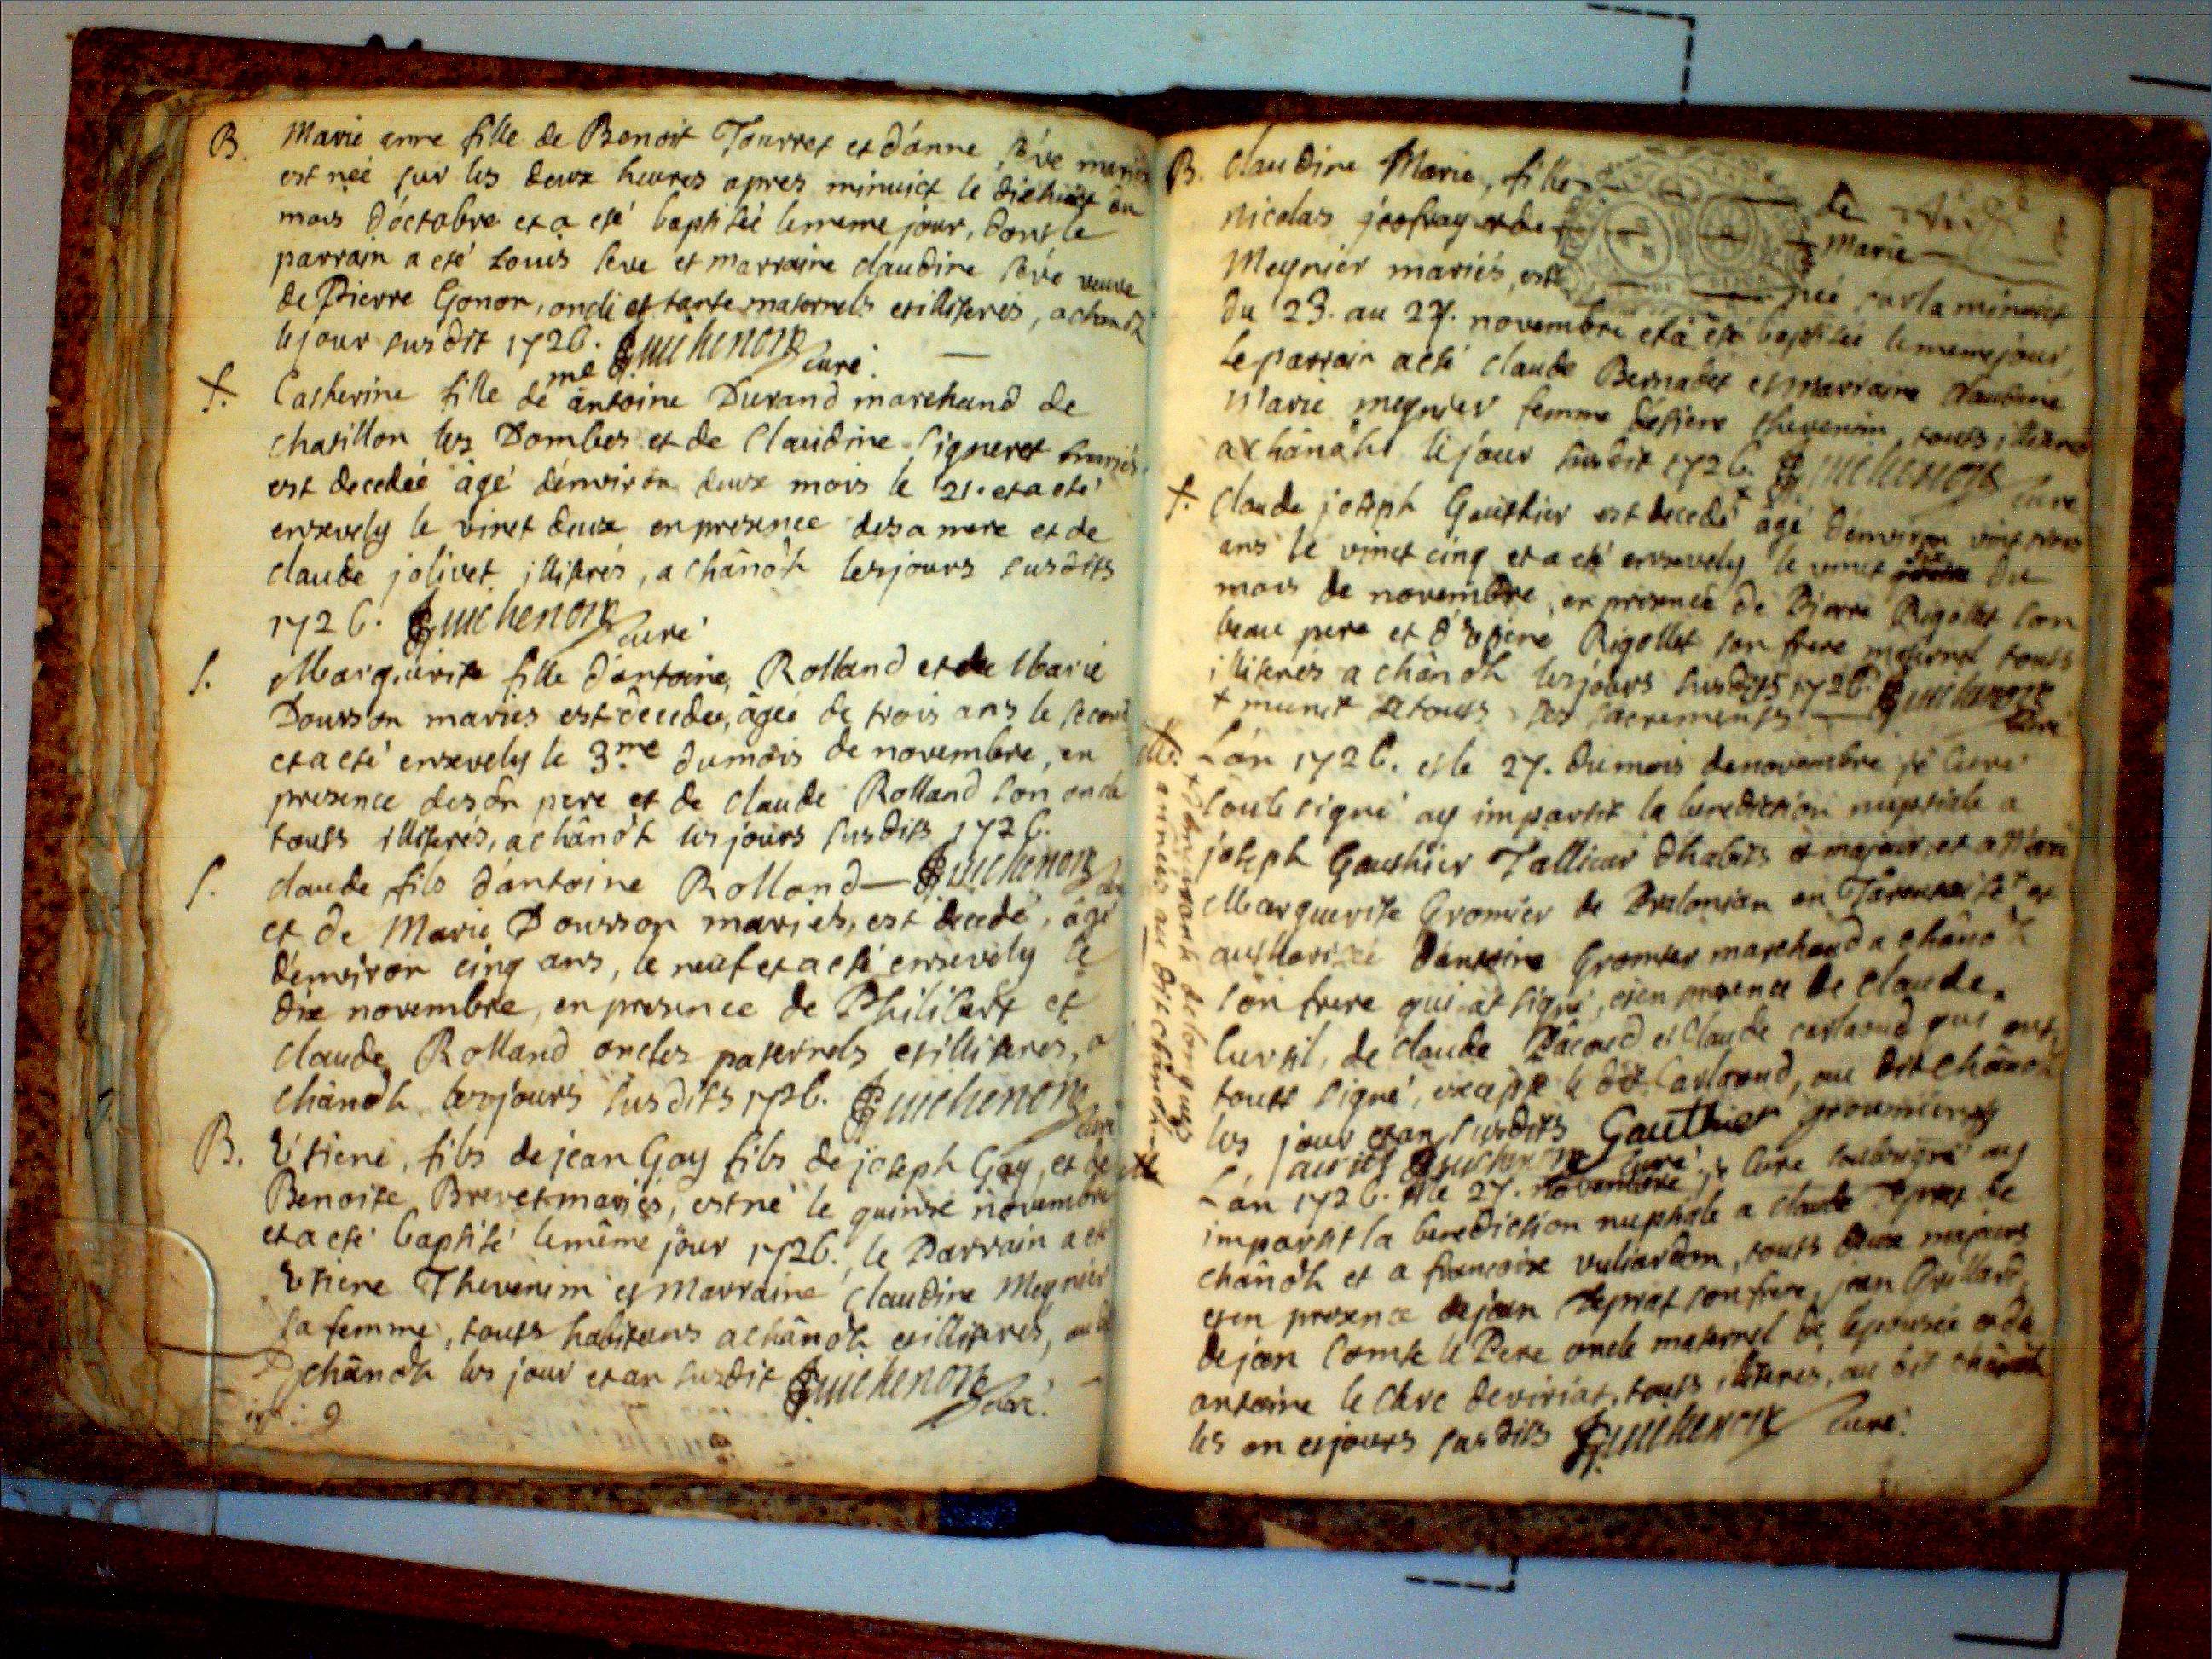 B. Marie anne fille de Benoit Tourret et d'anne séve mariés
est neé sur les deux heures apres minuict le dixhuict du
mois d'octobre et a esté baptiseé le meme jour, dont le
parrain a eté Louis seve et marraine claudine séve veuve
de Pierre Gonon, oncle et tante maternels et illiterés, a chanoz
le jour susdit 1726. Guichenon curé.
S. Catherine fille de me antoine Durand marchand de
chatillon les Dombes et de Claudine Signeret mariés
est decedeé agé d'environ deux mois le 21. et a eté
ensevely le vinct deux en presence de sa mere et de
claude jolivet illiterés, a chânoz les jours susdits
1726. Guichenon curé
S. Marguerite fille d'antoine Rolland et de Marie
Dourson mariés est decedeé, ageé de trois ans le second
et a eté ensevely le 3.me du mois de novembre, en
presence de son pere et de claude Rolland son oncle
touts illiterés, a chânoz les jours susdits 1726.
S. claude fils d'antoine Rolland — Guichenon curé
et de Marie Dourson mariés, est decedé, agé
d'environ cinq ans, le neuf et a eté ensevely le
dix novembre, en presence de Philibert et
claude Rolland oncles paternels et illiterés, a
chânoz les jours susdits 1726. Guichenon curé
B. Etiene, fils de jean Gay fils de joseph Gay, et de
Benoite Brevet mariés, est né le quinze novembre
et a eté baptisé le même jour 1726., le Parrain a eté
Etiene Thevenin et Marraine claudine Meynier
sa femme, touts habitans a chânoz et illiterés, au dit
chânoz les jour et an susdit Guichenon curé.
B. Claudine Marie, fille de
nicolas jeofray et de Marie
Meynier mariés, est neé sur la minuict
du 23. au 24. novembre et a eté baptiseé le meme jour,
le parrain a eté claude Bernadet et marraine claudine
Marie meynier femme d'etiene thevenin, touts illiterés
a chânoz le jour susdit 1726. Guichenon curé
S. Claude joseph Gauthier est decedé + agé d'environ vinct trois
ans le vinct cinq et a eté ensevely le vinct six du
mois de novembre, en presence de Pierre Rigollet son
beau pere et d'Etiene Rigollet son frere maternel touts
illiterés a chânoz les jours susdits 1726. Guichenon
+ munit de touts les sacrements curé
M. L'an 1726. et le 27. du mois de novembre je curé
soubsigné ay impartit la benediction nuptiale a
joseph Gauthier Tallieur d'habits
Marguerite Gromier de en Tarentaise + et
authoriseé d'antoine Gromier marchand a chânoz
son frere qui at signé, et en presence de claude
de claude et Claude qui ont
touts signé, excepté le dit au dit chânoz
les jour et an susdits Gauthier
Guichenon curé
+ demeurante de longues
anneés au dit chânoz
M. L'an 1726. et le 27. novembre, je curé soubsigné ay
impartit la benediction nuptiale a claude de
chânoz et a francoise vuliardon, touts deux majeurs
et en presence de jean son frere, jean
de jean Comte le Pere oncle maternel de l'epouseé et de
antoine le clerc de viriat, touts illiterés, au dit chânoz
les an et jours susdits Guichenon curé.